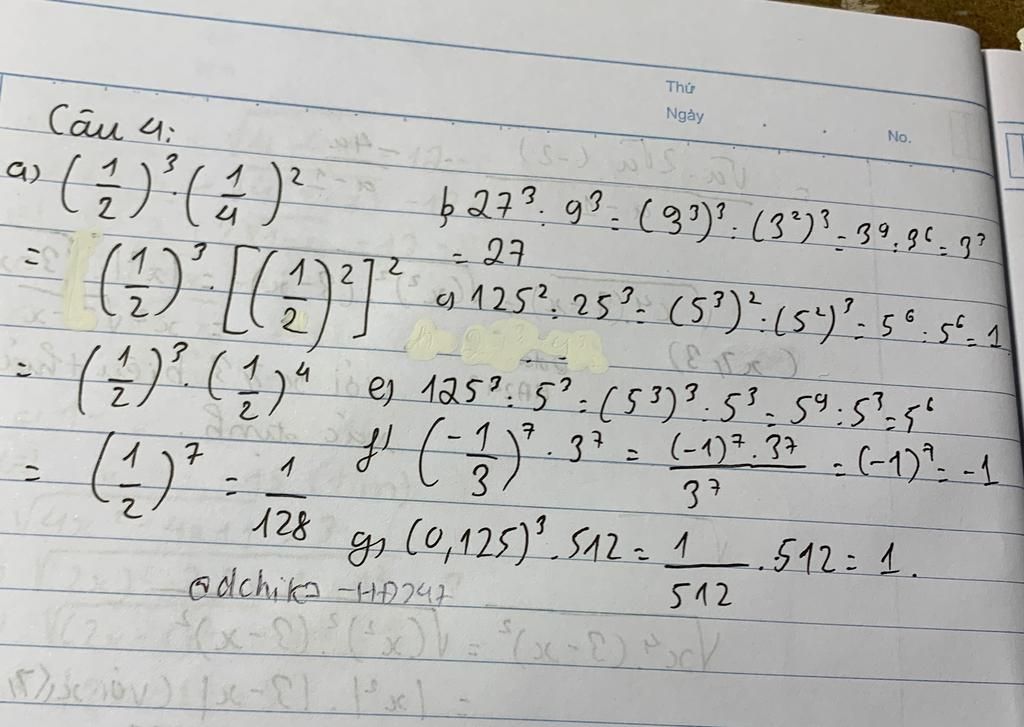 Thứ
Ngày
No.
Câu 4:
a) (1/2)³ · (1/4)²
= (1/2)³ · [(1/2)²]²
= (1/2)³ · (1/2)⁴
= (1/2)⁷ = 1/128
b, 27³ : 9³ = (3³)³ : (3²)³ = 3⁹ : 3⁶ = 3³
= 27
c, 125² : 25³ = (5³)² : (5²)³ = 5⁶ : 5⁶ = 1
e, 125³ : 5³ = (5³)³ : 5³ = 5⁹ : 5³ = 5⁶
f, (-1/3)⁷ · 3⁷ = (-1)⁷ · 3⁷ / 3⁷ = (-1)⁷ = -1
g, (0,125)³ · 512 = 1/512 · 512 = 1.